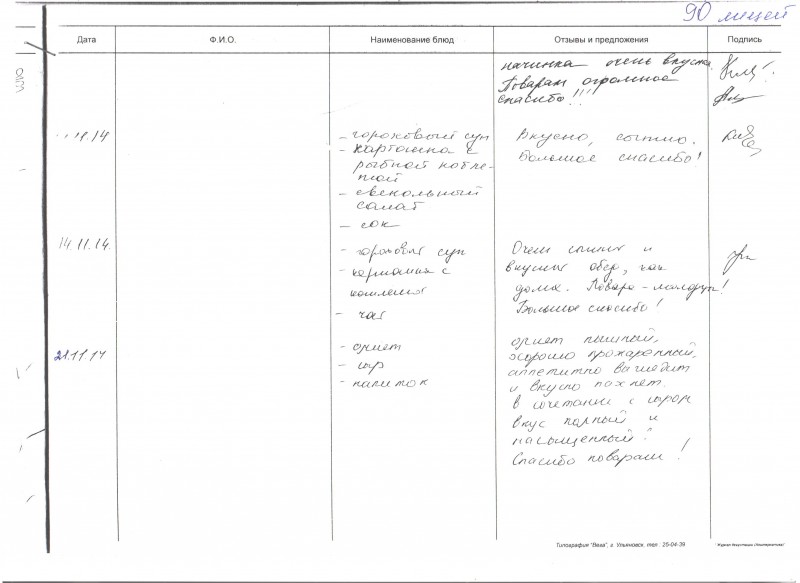 90 лицей
Дата Ф.И.О. Наименование блюд Отзывы и предложения Подпись
начинка очень вкусна.
Поварам огромное
спасибо!!!
11.14 - гороховый суп Вкусно, сытно.
- картошка с Большое спасибо!
рыбной котле-
той
- свекольный
салат
- сок
14.11.14. - гороховый суп Очень сытный и
- картошка с вкусный обед, как
котлетой дома. Повара - молодцы!
- чай Большое спасибо!
21.11.14 - омлет омлет пышный,
- сыр хорошо прожаренный,
- напиток аппетитно выглядит
и вкусно пахнет.
в сочетании с сыром
вкус полный и
насыщенный!
Спасибо поварам!
Типография "Вега", г. Ульяновск, тел.: 25-04-39